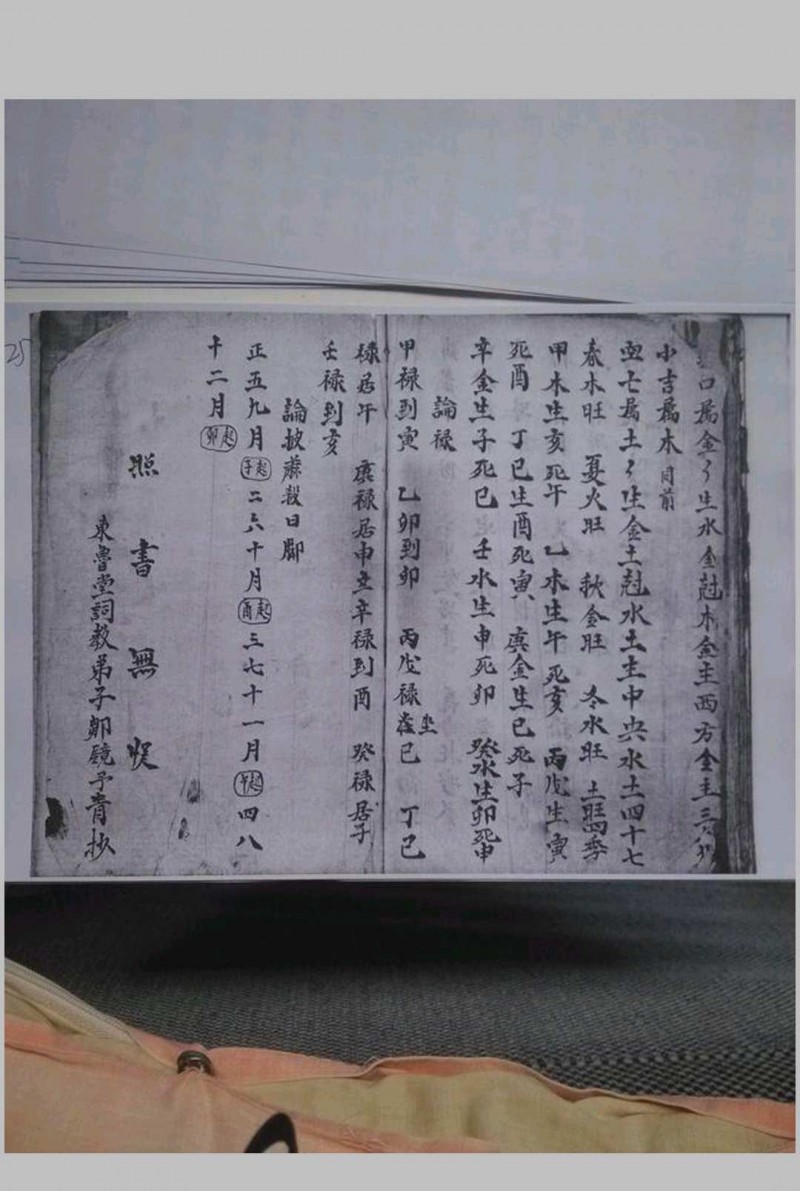 口属金〻生水金尅木金主西方金主三
小吉属木 目前
空亡属土〻生金土尅水土主中央水土四十七
春木旺 夏火旺 秋金旺 冬水旺 土旺四季
甲木生亥死午 乙木生午死亥 丙戊生寅
死酉 丁巳生酉死寅 庚金生巳死子
辛金生子死巳 壬水生申死卯 癸水生卯死申
論禄
甲禄到寅 乙卯到卯 丙戊禄坐巳 丁巳
禄居午 庚禄居申立辛禄到酉 癸禄居子
壬禄到亥
論披蔴殺日脚
正五九月起子二六十月起酉三七十一月起午四八
十二月起卯
照書無悞
東魯堂詞教弟子鄭鏡予青抄
25